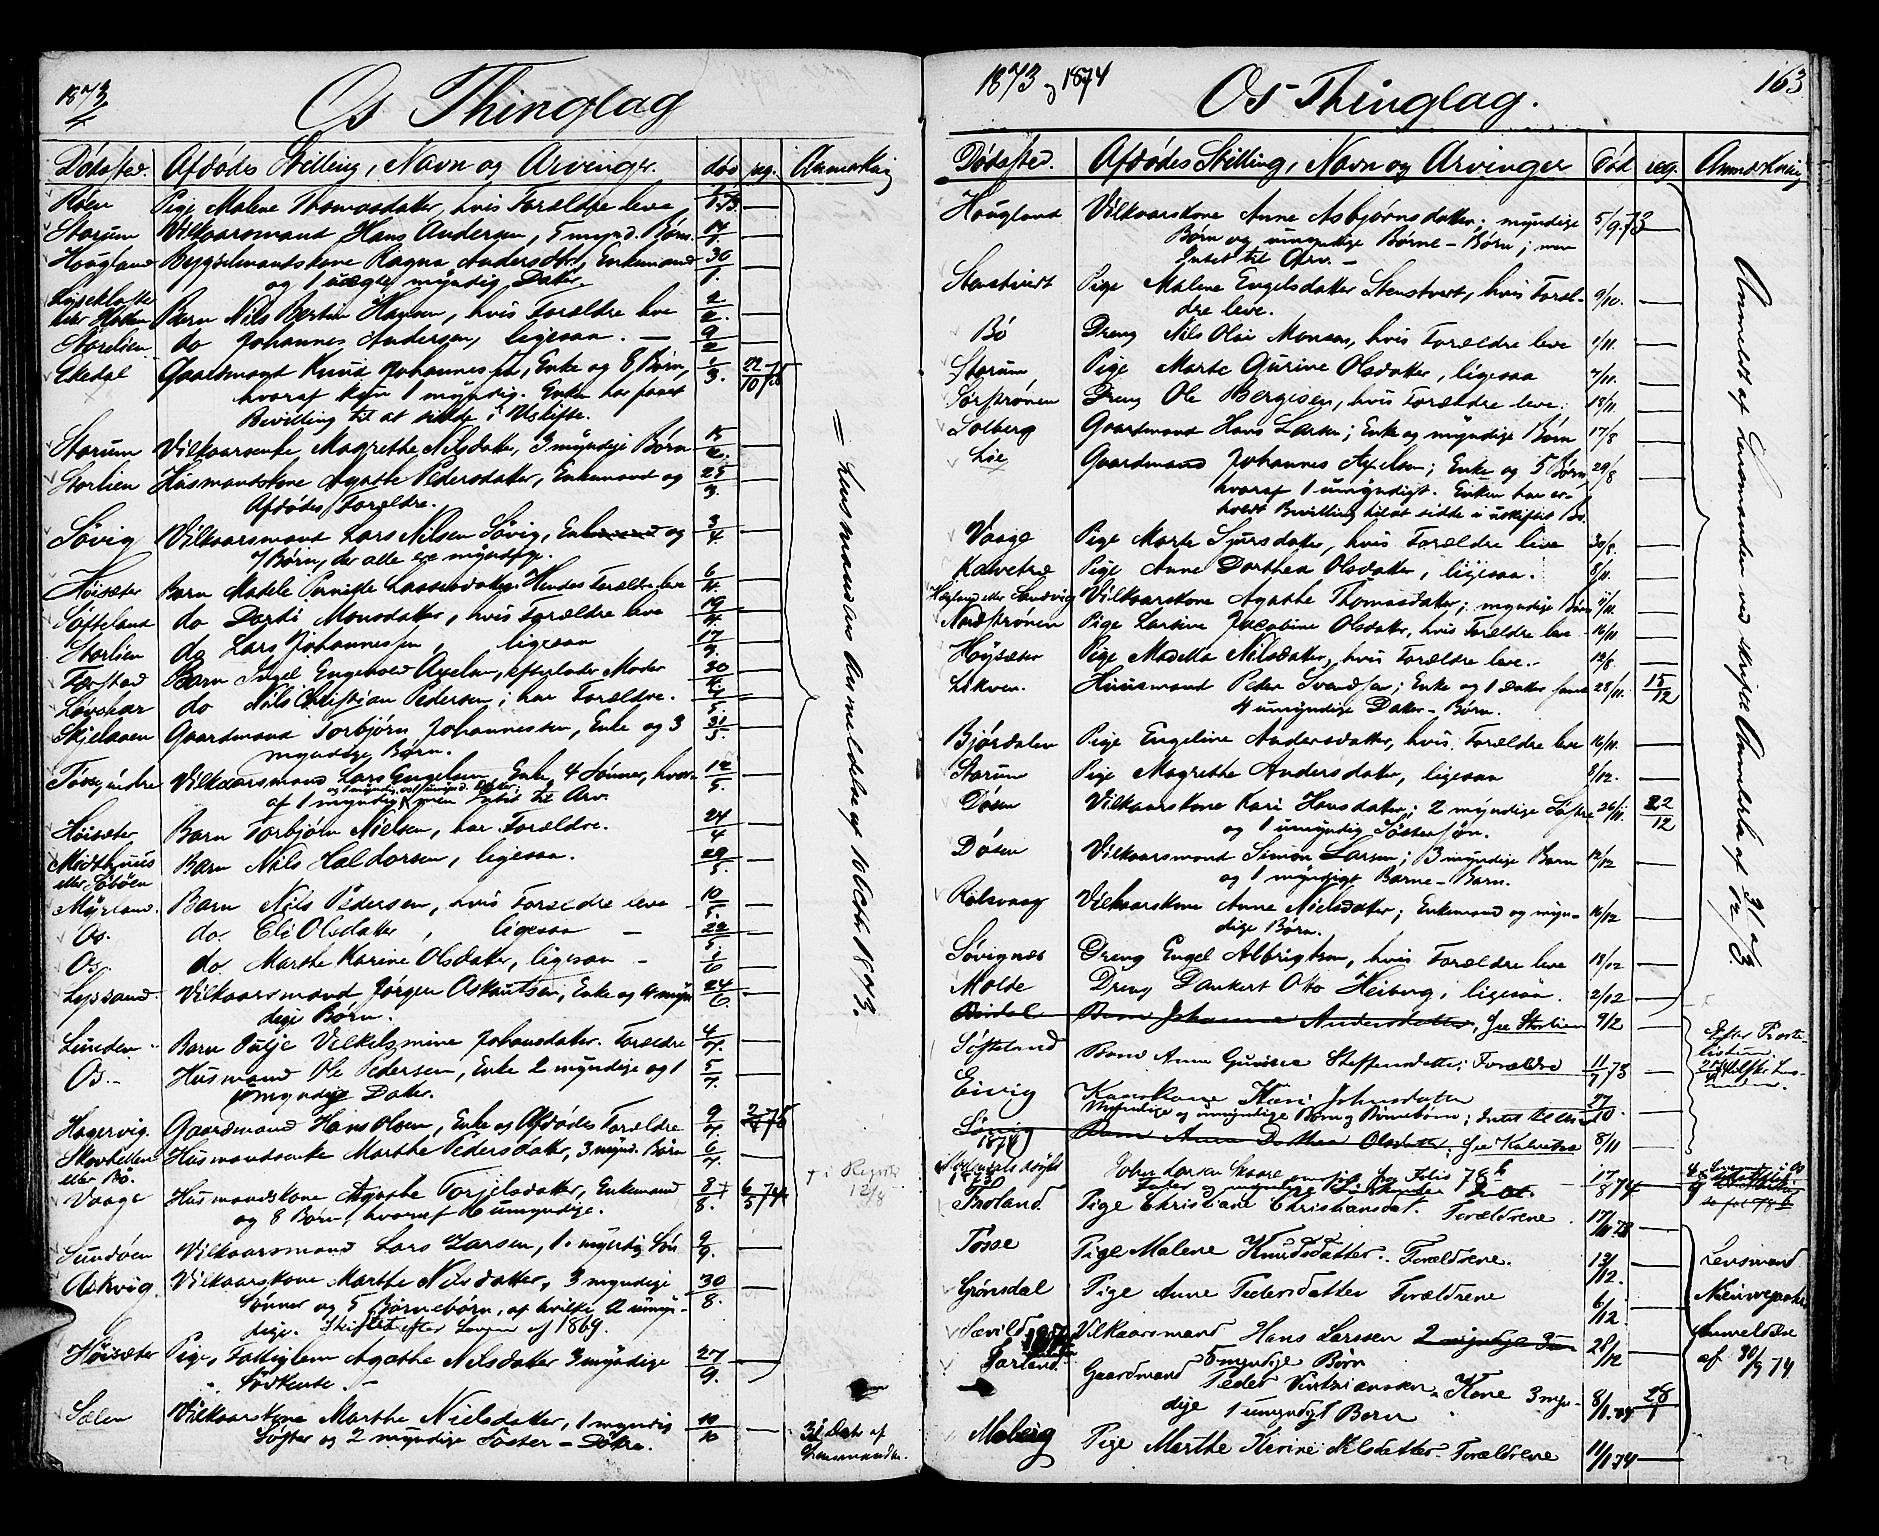 1873/4
Os Thinglag
Dödssted. Afdödes Stilling, Navn og Arvinger. död reg. Anmærkning
Röen Pige Malene Thomasdatter, hvis Forældre leve
Storum Vilkaarsmand Hans Andersen, 5 mynd. Börn. 17/1.
Hougland Bygselmandskone Ragna Andersdatter, Enkemand 30/1.
og 1 uægte myndig Datter.
Lyseklofte Barn Nils Bertin Hansen, hvis Forældre leve 2/2.
eller Holten
Storlien do Johannes Andersen, ligesaa. — 9/2
Ekedal Gaardmand Knud Johannessen, Enke og 8 Börn, 1/3. 22/10 75
hvoraf kun 1 myndig. Enken har faaet
Bevilling til at sidde i Uskifte.
Storum Vilkaarsenke Magrethe Nilsdatter, 3 myndige Börn 15/2.
Storlien Husmandskone Agathe Pedersdatter, Enkemand og 25/3.
Afdödes Forældre.
Sövig Vilkaarsmand Lars Nilsen Sövig, Enke og 3/4
7 Börn, der alle ere myndige.
Höisæter Barn Madele Pernille Lassesdatter, Hendes Forældre leve 6/4.
Söfteland do Dordi Monsdatter, hvis Forældre leve 19/4.
Storlien do Lars Johannessen, ligesaa 17/3.
Forstad Barn Ingel Engelsen Axelsen, efterlader Moder 30/4
Lövskar do Nils Christian Pedersen, har Forældre.
Skjelaaen Gaardmand Torbjörn Johannessen, Enke og 3
myndige Börn.
Tösse yndre Vilkaarsmand Lars Engelsen, Enke, 4 Sönner, hvor- 12/5.
af 1 myndig, men Intet til Arv.
Höisæter Barn Torbjörn Nielsen, har Forældre. 24/4
Midthuus Barn Nils Haldorsen, ligesaa. 29/5.
eller Söböen
Myrland. Barn Nils Pedersen, hvis Forældre leve 10/5.
Os. do. Eli Olsdatter, ligesaa — 22/5
Os do Marthe Karine Olsdatter, ligesaa — 1/6
Lyssand. Vilkaarsmand Jörgen Askautsen, Enke og 4 myn- 24/6
dige Börn.
Lunden Barn Vilkelzmine Johansdatter. Forældre 4/7.
Os. Husmand Ole Pedersen, Enke 2 myndige og 1 5/7.
umyndig Datter.
Hagervig. Gaardmand Hans Olsen, Enke og Afdödes Forældre 9/7
Skovhellen Husmandsenke Marthe Pedersdatter, 3 mynd. Börn 6/7.
eller Bö.
Vaage Husmandskone Agathe Torjelsdatter, Enkemand 8/8. 6/3 74
og 8 Börn, hvoraf 6 umyndige.
Sundöen Vilkaarsmand Lars Larsen, 1 myndig Sön 2/9.
Askvig. Vilkaarskone Marthe Nilsdatter, 3 myndige 30/8.
Sönner og 5 Börnebörn, af hvilke 2 umyn-
dige. Skiftet efter Loven af 1869.
Höisæter Pige, Fattiglem Agathe Nilsdatter 3 myndige 27/9.
Södkende. —
Sælen Vilkaarskone Marthe Nielsdatter, 1 myndig 10/10
Söster og 2 myndige Söster-Döttre.
= Lensmandens Anmeldelse af 10 Octbr 1873.
12/8
31 Dec af
Lensmanden.
1873 og 1874
Os Thinglag.
163
Dödssted. Afdödes Stilling, Navn og Arvinger Död reg. Anmærkning
Hougland Vilkaarskone Anne Asbjörnsdatter; myndige 5/9.73
Börn og umyndige Börne-Börn; men
Intet til Arv. —
Stenstvert Pige Malene Engelsdatter Stenstvert, hvis Foræl- 9/10.
dre leve.
Bö Dreng Nils Olai Monsen, hvis Forældre leve 1/11.
Storum Pige Marte Gurine Olsdatter, ligesaa 7/11.
Sörströnen Dreng Ole Bergesen, hvis Forældre leve. 18/11
Solberg Gaardmand Hans Larsen; Enke og myndige Börn 17/8
Lie Gaardmand Johannes Axelsen; Enke og 5 Börn 29/8
hvoraf 1 umyndigt. Enken har er-
hvervet Bevilling til at sidde i uskiftet Bo.
Vaage Pige Marte Sjursdatter, hvis Forældre leve 30/8.
Kalvetræ Pige Anne Dorthea Olsdatter, ligesaa. 8/11.
Hougland eller Sandvig Vilkaarskone Agathe Thomasdatter; myndige Börn 11/11.
Nordströnen Pige Larsine Jacobine Olsdatter, hvis Forældre leve 16/11
Höysæter Pige Madella Nilsdatter, hvis Forældre leve. 12/8.
Likven. Huusmand Peder Svendsen; Enke og 1 Datter samt 28/11. 15/12
4 umyndige Datter-Börn.
Björdalen Pige Engeline Andersdatter, hvis Forældre leve 16/11.
Storum Pige Magrethe Andersdatter, ligesaa 8/12.
Dösen Vilkaarskone Kari Hansdatter; 2 myndige Söstre 26/11. 22/12
og 1 umyndig Söstersön.
Dösen Vilkaarsmand Simon Larsen; 3 myndige Börn 12/12
og 1 myndigt Barne-Barn.
Rölsvaag Vilkaarskone Anne Nielsdatter; Enkemand og myn- 16/12
dige Börn.
Sövignæs Dreng Engel Albrigtsen, hvis Forældre leve 18/12
Molde Dreng Dankert Otto Heiberg, ligesaa. 2/12
Rindal Barn Johanne Andersdatter, see Storlien 9/2
Söfteland Barn Anne Gurine Steffensdatter; Forældre 11/7 73
Eivig Kaarskone Kari Johnsdatter 27/10.
Myndige og umyndige Börn og Börnebörn; Intet til Arv
Sövig Barn Anne Dorthea Olsdatter, see Kalvetræ 8/11
1874
John Larsen Skaare see Folio 78 b 17/8 74
Troland Pige Christiane Christiansdat. Forældrene. 17/11 73
Tösse Pige Malene Knudsdatter. Forældrene. 13/12.
Grönsdal Pige Anne Pedersdatter Forældrene 6/12.
Sævild Vilkaarsmand Hans Larssen 2 myndige 28/12
5 myndige Börn
Sörland Gaardmand Peder Christiansen. Kone 3 myn- 8/1.74 28/1
dige 1 umyndigt Börn
Moberg Pige Marthe Karine Nilsdatter. Forældrene 11/1 74
Anmeldt af Lensmanden ved skriftlig Anmeldelse af 31/12 73
Efter Præste-
listerne.
Lensmand
Anmeldelse
af 30/9 74